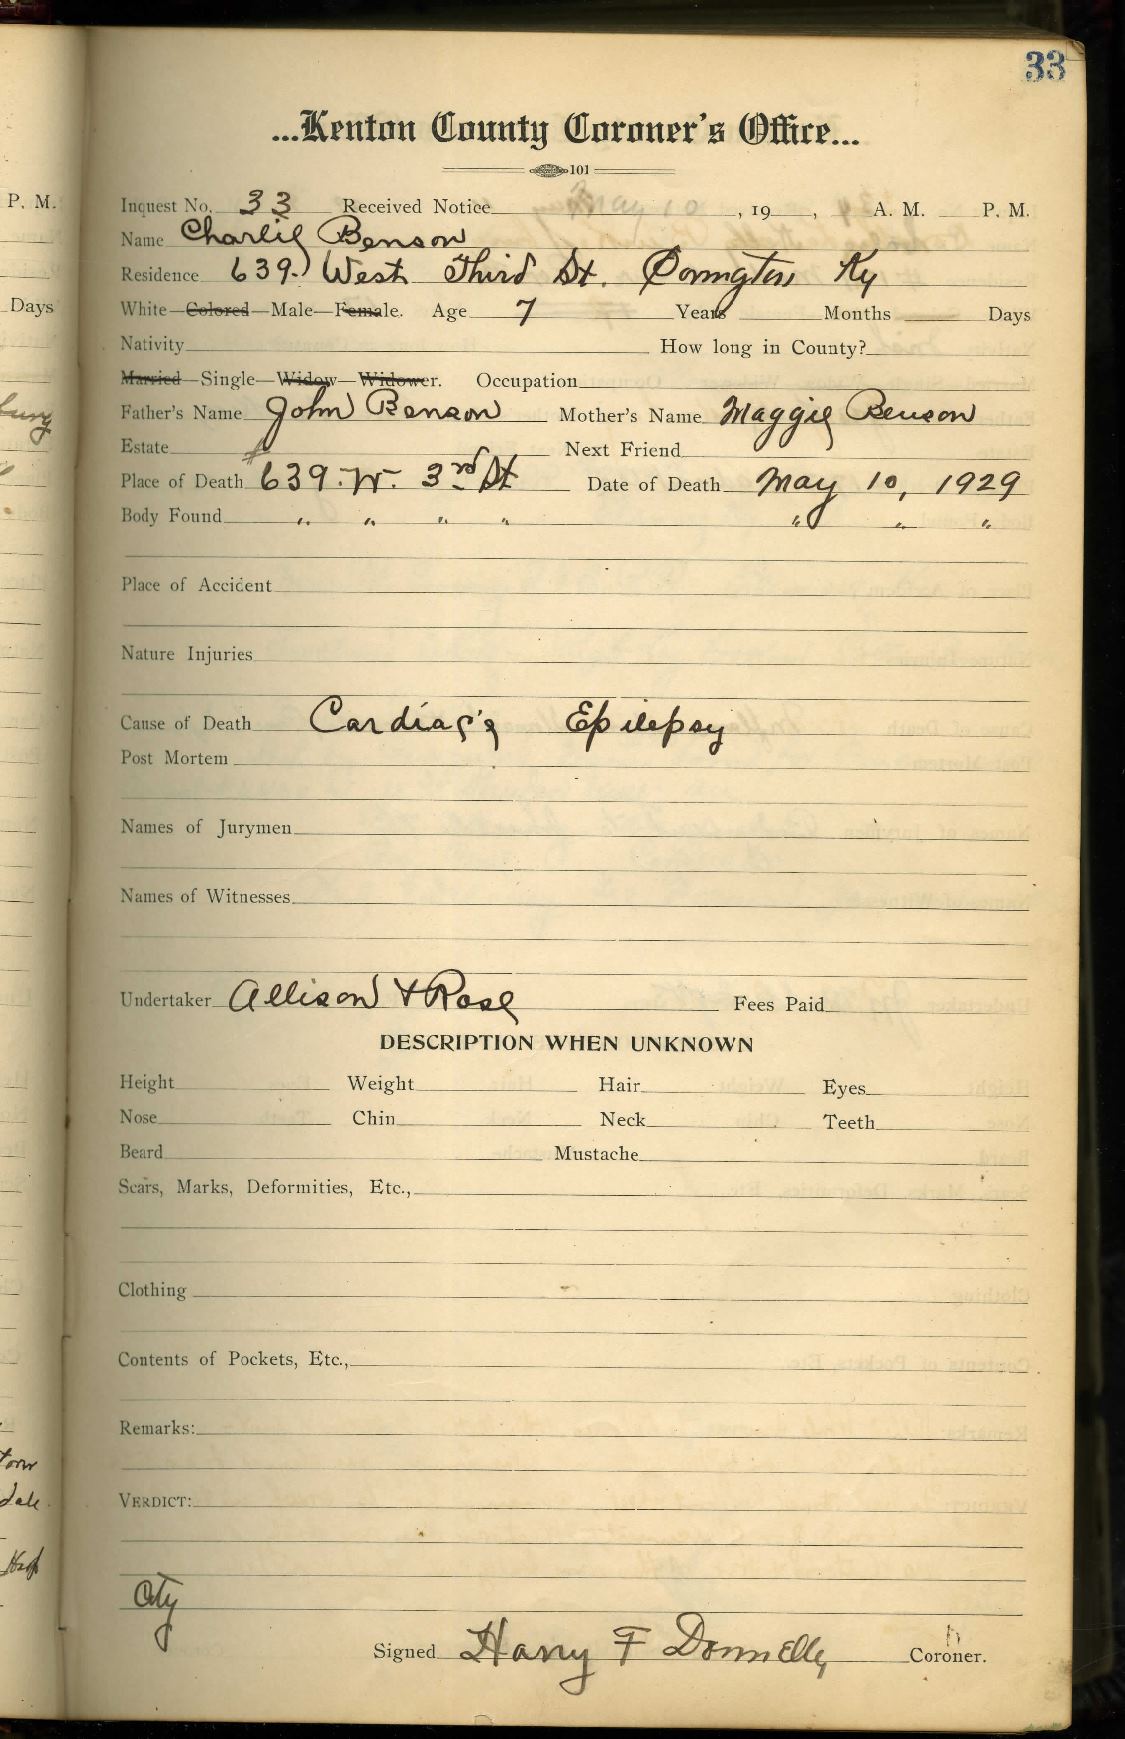 33
...Kenton County Coroner's Office...
101
Inquest No. 33 Received Notice , 19 , A. M. P. M.
Name Charlie Benson
Residence 639 West Third St. Covington Ky
White—Colored—Male—Female. Age 7 Years Months Days
Nativity How long in County?
Married—Single—Widow—Widower. Occupation
Father's Name John Benson Mother's Name Maggie Benson
Estate Next Friend
Place of Death #639. W. 3rd St Date of Death May 10, 1929
Body Found " " " " " " "
Place of Accident
Nature Injuries
Cause of Death Epilepsy
Post Mortem
Names of Jurymen
Names of Witnesses
Undertaker Allison & Rose Fees Paid
DESCRIPTION WHEN UNKNOWN
Height Weight Hair Eyes
Nose Chin Neck Teeth
Beard Mustache
Scars, Marks, Deformities, Etc.,
Clothing
Contents of Pockets, Etc.,
Remarks:
VERDICT:
City
Signed Harry F Donnelly Coroner.
P. M.
Days